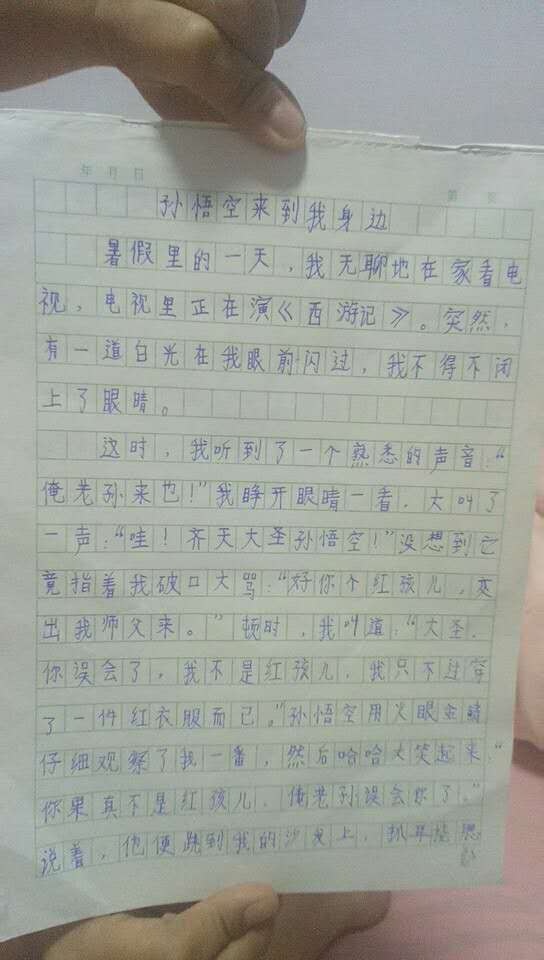 年 月 日
第 页
孙悟空来到我身边
暑假里的一天，我无聊地在家看电
视，电视里正在演《西游记》。突然，
有一道白光在我眼前闪过，我不得不闭
上了眼睛。
这时，我听到了一个熟悉的声音：“
俺老孙来也！”我睁开眼睛一看，大叫了
一声：“哇！齐天大圣孙悟空！”没想到它
竟指着我破口大骂：“好你个红孩儿，交
出我师父来。”顿时，我叫道：“大圣，
你误会了，我不是红孩儿，我只不过穿
了一件红衣服而已。”孙悟空用火眼金睛
仔细观察了我一番，然后哈哈大笑起来：“
你果真不是红孩儿，俺老孙误会你了。”
说着，他便跳到我的沙发上，抓耳挠腮